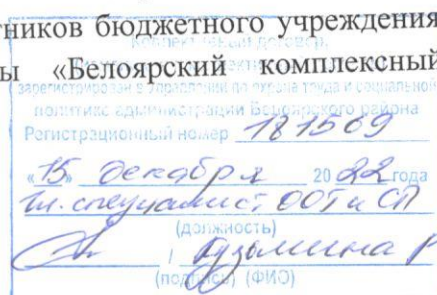 тников бюджетного учреждения
ы «Белоярский комплексный
Коллективный договор,
зарегистрирован в Управлении по охране труда и социальной
политике администрации Белоярского района
Регистрационный номер 181569
«15» декабря 2022 года
Гл. специалист ООТ и СП
(должность)
/ Кузьмина Р
(подпись) (ФИО)